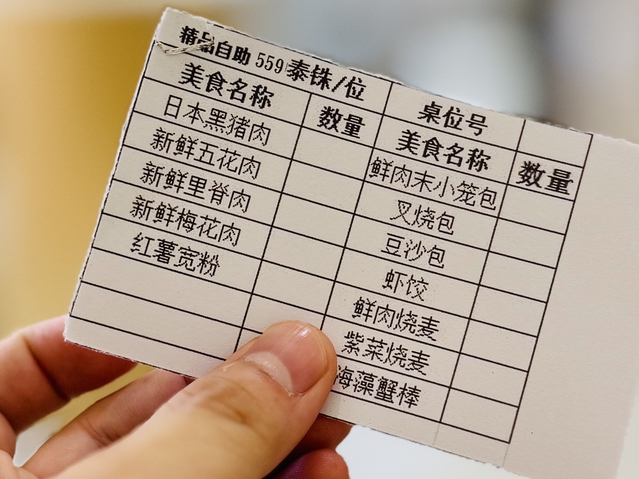 精品自助 559 泰铢/位
桌位号
美食名称 数量 美食名称 数量
日本黑猪肉 鲜肉末小笼包
新鲜五花肉 叉烧包
新鲜里脊肉 豆沙包
新鲜梅花肉 虾饺
红薯宽粉 鲜肉烧麦
紫菜烧麦
海藻蟹棒